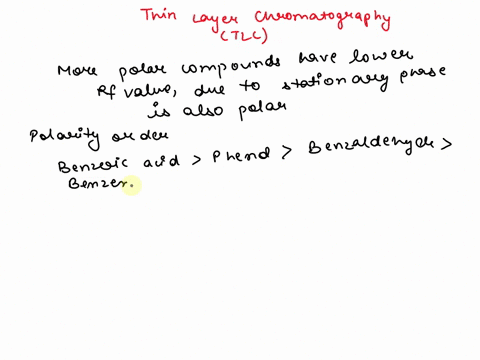 Thin Layer Chromatography
(TLC)
More polar compounds have lower
Rf value, due to stationary phase
is also polar
Polarity order
Benzoic acid > Phenol > Benzaldehyde >
Benzen